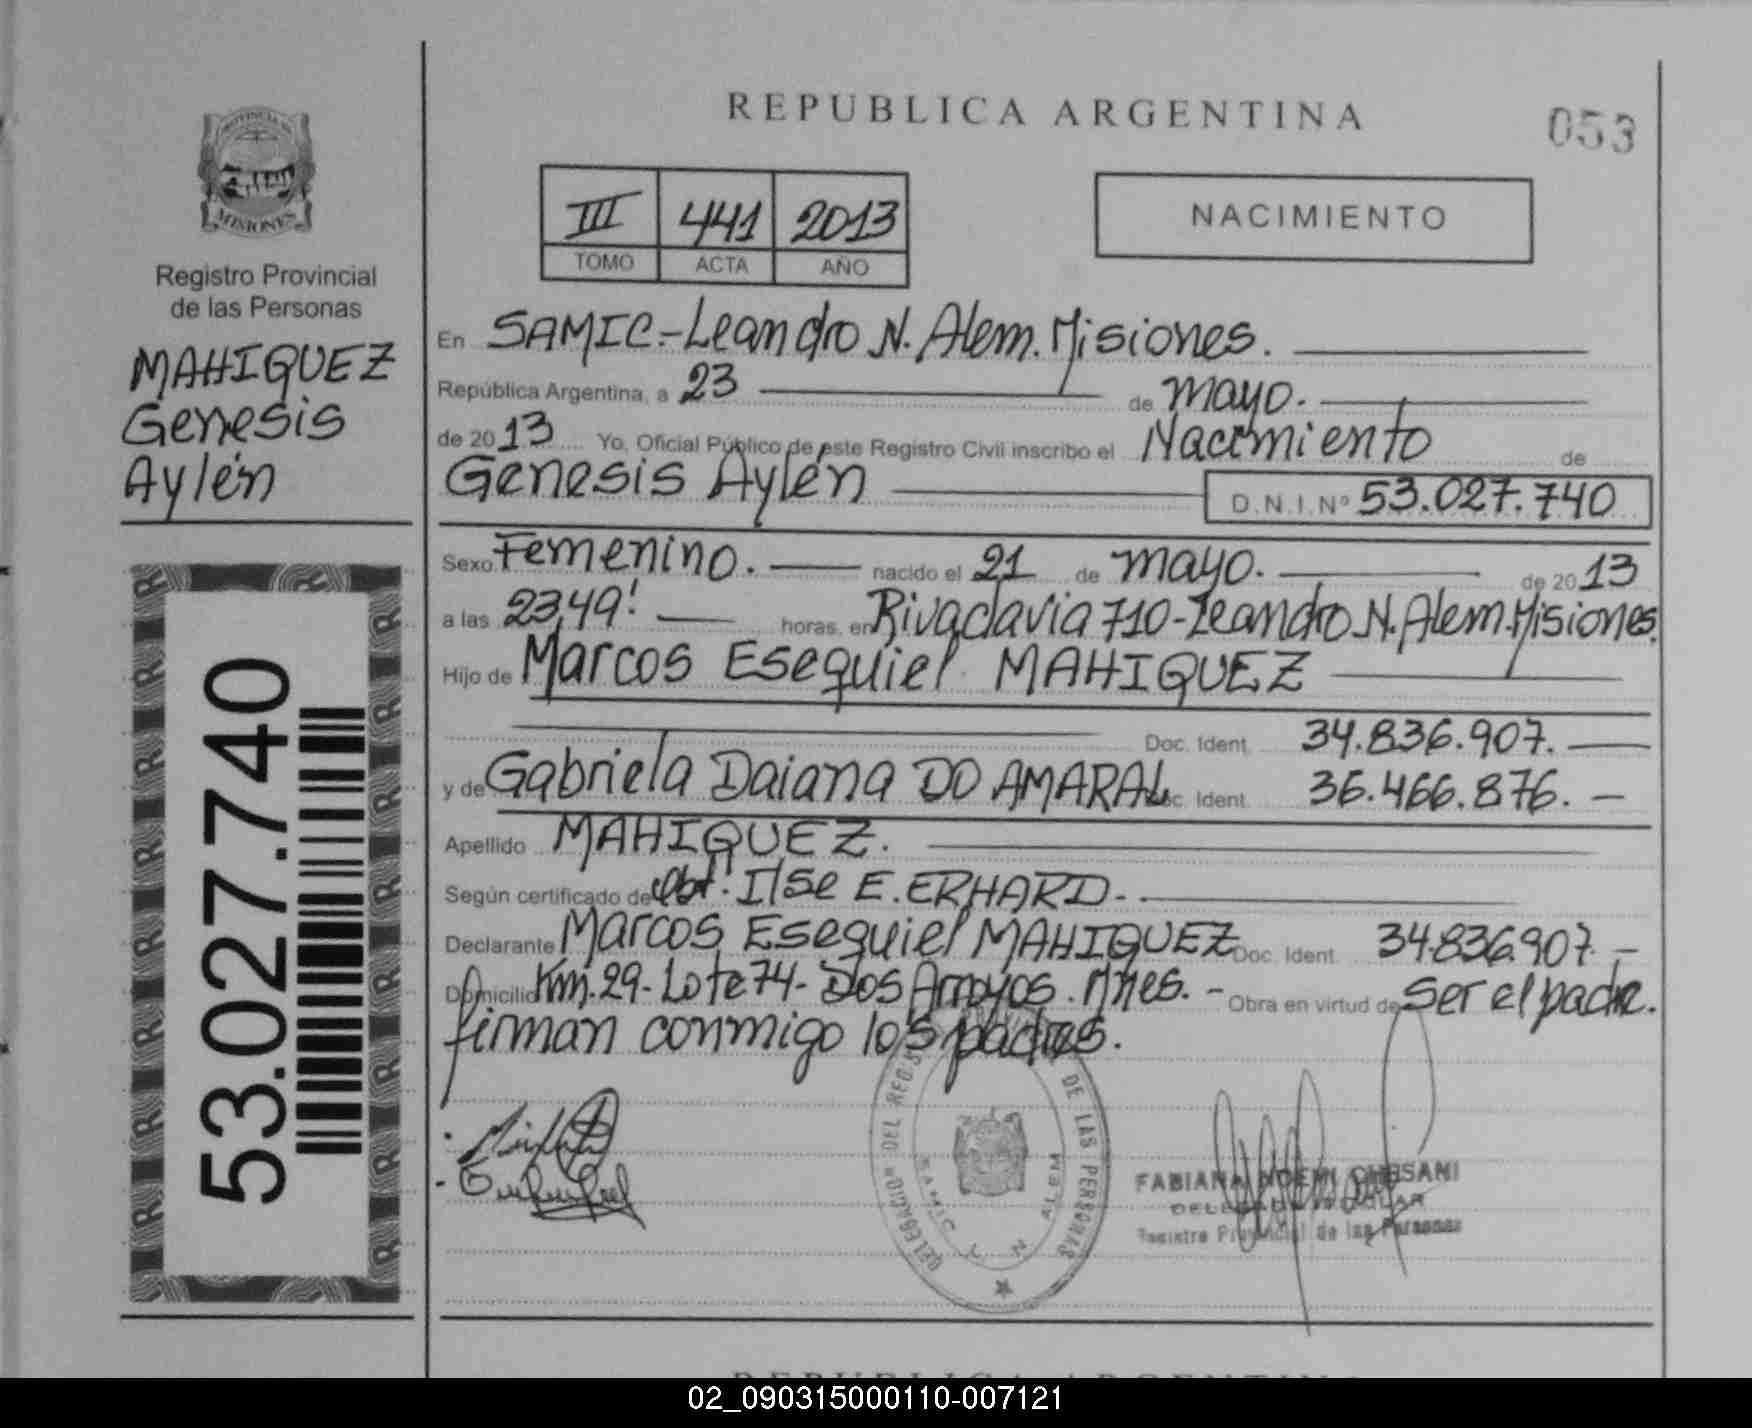 REPUBLICA ARGENTINA
053
PROVINCIA DE
MISIONES
Registro Provincial
de las Personas
MAHIQUEZ
Genesis
Aylén
III 441 2013
TOMO ACTA AÑO
NACIMIENTO
En SAMIC.-Leandro N. Alem. Misiones.
República Argentina, a 23 de mayo.
de 2013 Yo, Oficial Público de este Registro Civil inscribo el Nacimiento de
Genesis Aylén D.N.I.Nº 53.027.740
Sexo Femenino. nacido el 21 de mayo. de 2013
a las 23,49! horas, en Rivadavia 710-Leandro N. Alem. Misiones.
Hijo de Marcos Esequiel MAHIQUEZ
Doc. Ident. 34.836.907.
y de Gabriela Daiana DO AMARAL Doc. Ident. 36.466.876.
Apellido MAHIQUEZ.
Según certificado de Obt. Ilse E. ERHARD.
Declarante Marcos Esequiel MAHIQUEZ Doc. Ident. 34.836.907.
Domicilio Km. 29. Lote 74- Dos Arroyos. Mnes. Obra en virtud de Ser el padre.
firman conmigo los padres.
53.027.740
DELEGACION DEL REGISTRO DE LAS PERSONAS
SAMIC L N ALEM
FABIANA NOEMI CHESANI
DELEGADA TITULAR
Registro Provincial de las Personas
REPUBLICA ARGENTINA
02_090315000110-007121